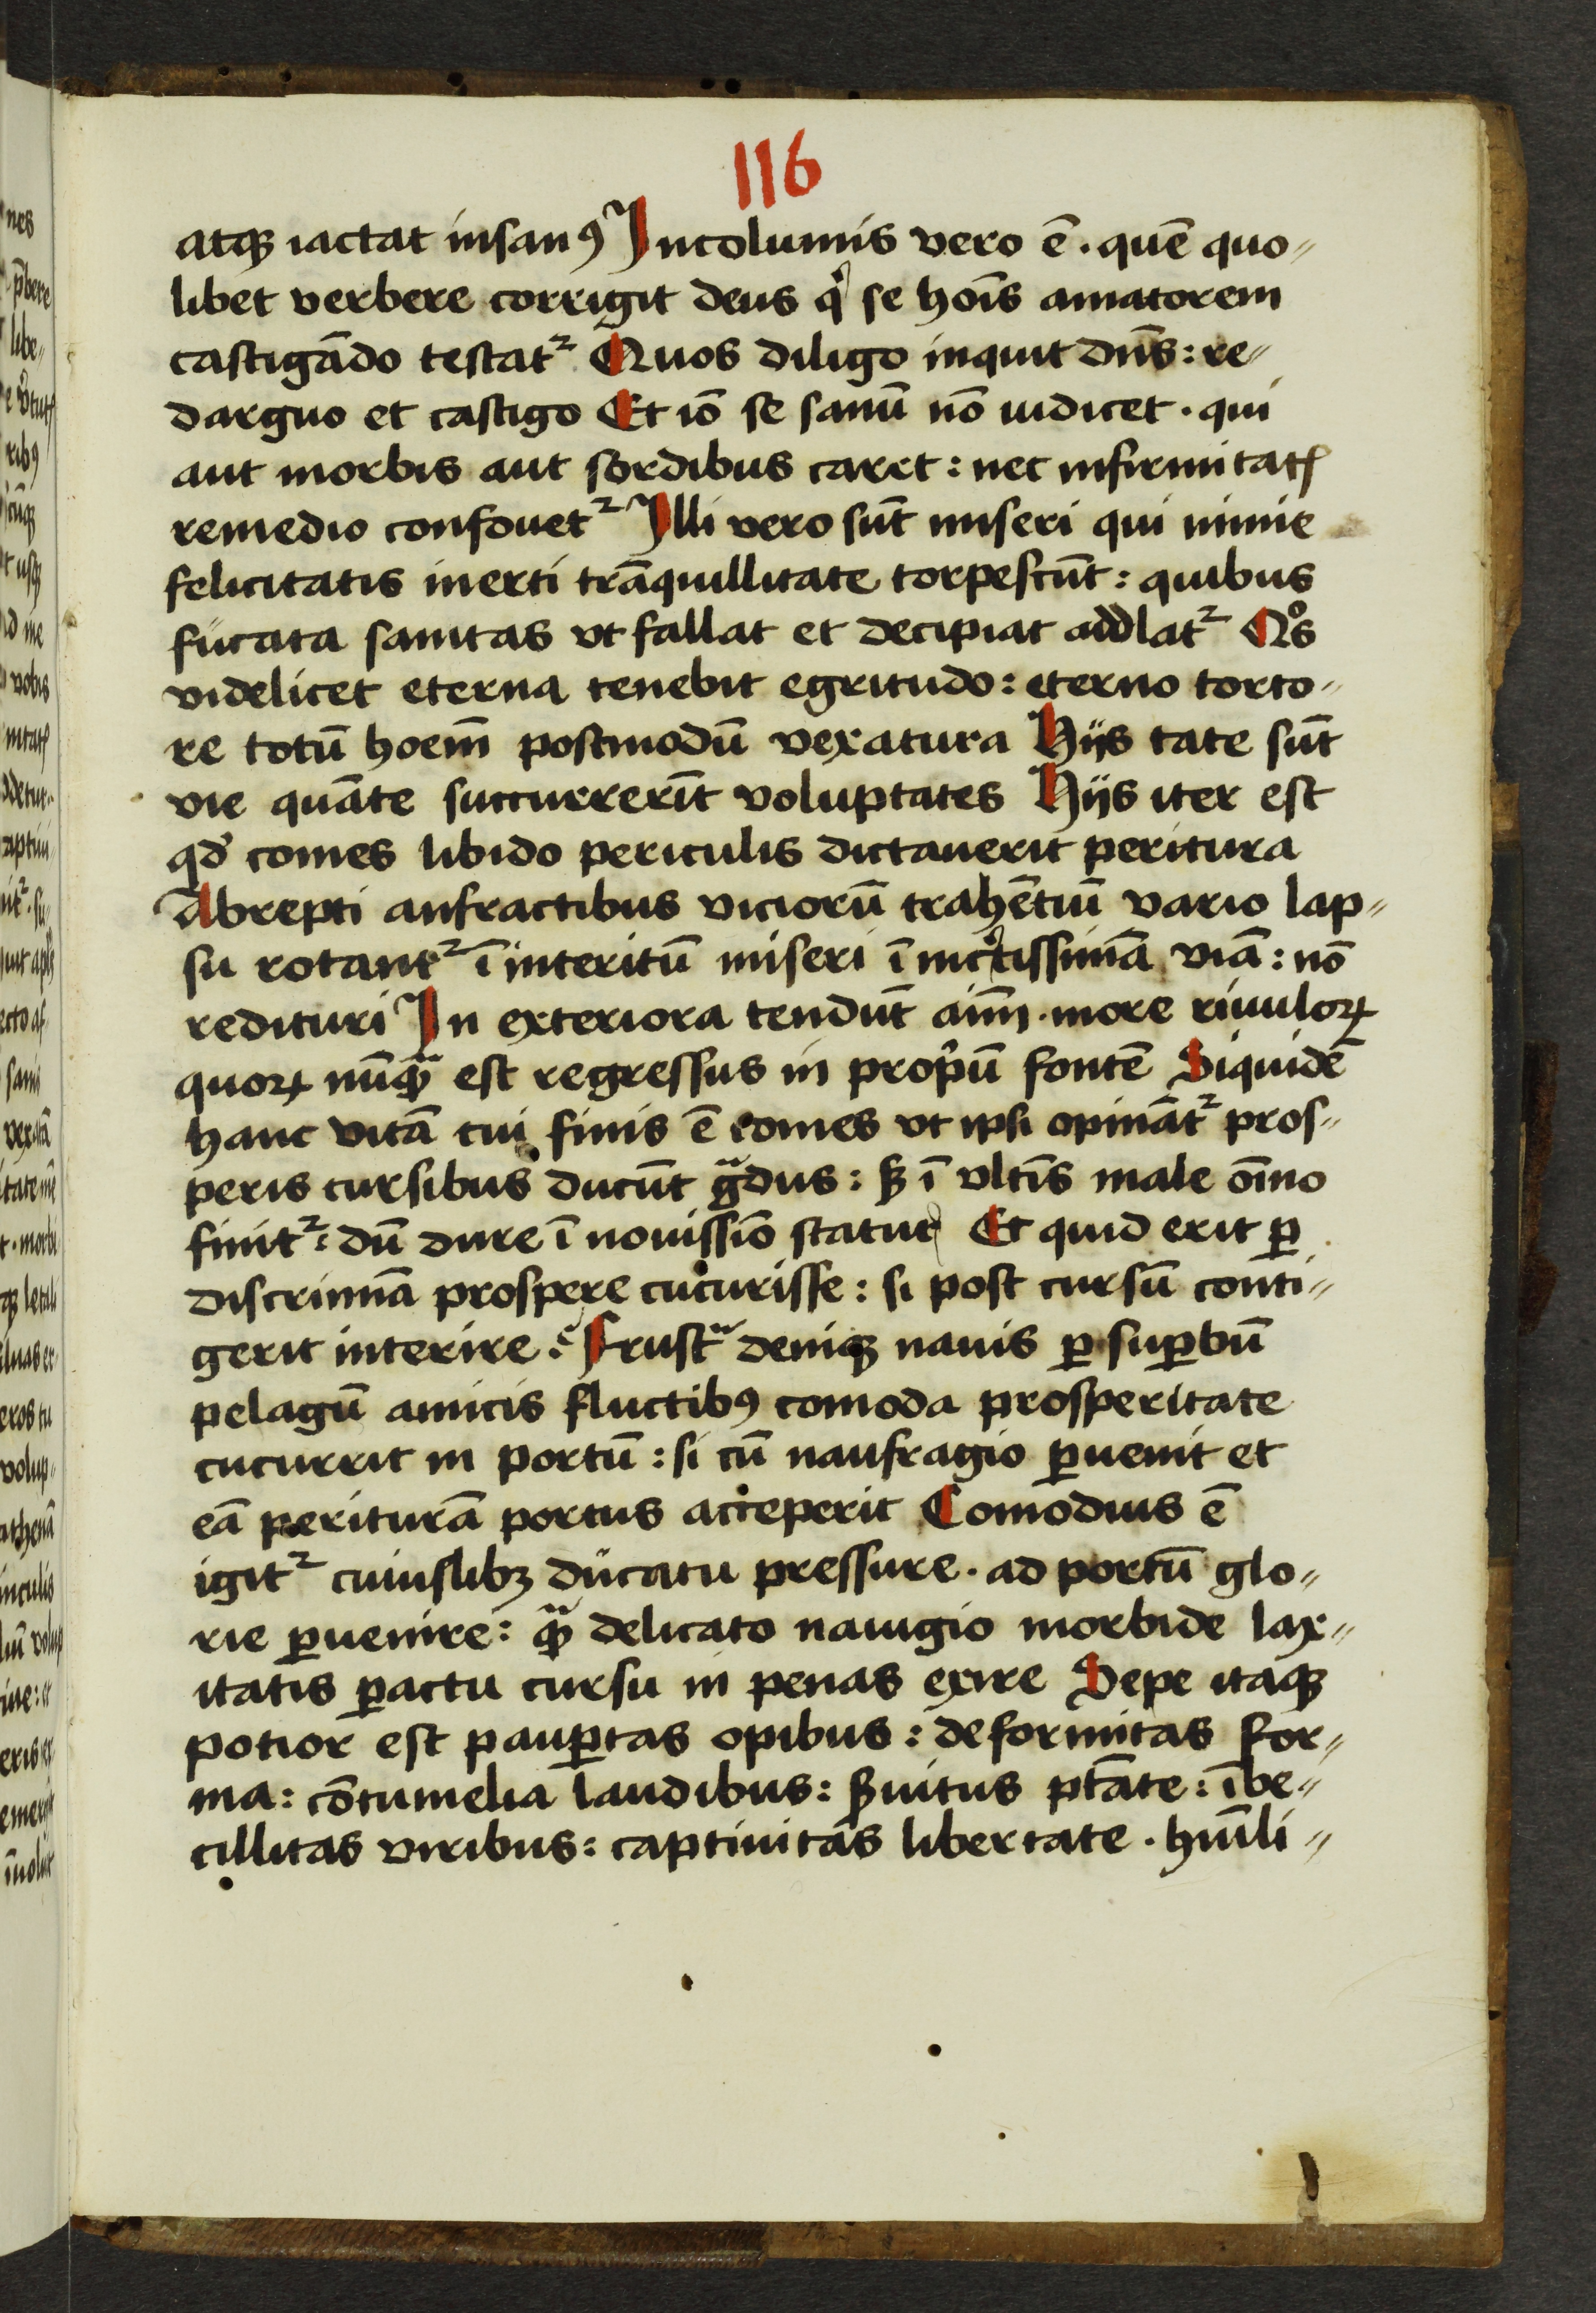 116
atqꝫ iactat insanꝰ Incolumis vero ē . quē quo⸗
libet verbere corrigit deus qͥ se hoīs amatorem
castigādo testatᷣ Quos diligo inquit dn̄s : re⸗
darguo et castigo Et iō se sanū nō iudicet . qui
aut morbis aut sordibus caret : nec infirmitatꝭ
remedio confouetᷣ Illi vero sūt miseri qui nimie
felicitatis inerti trāquillitate torpescūt : quibus
fucata sanitas vt fallat et decipiat addlatᷣ Qͦs
videlicet eterna tenebit egritudo : eterno torto⸗
re totū hoem̄ postmodū vexatura Hijs tate sūt
vie quāte succurrerīt voluptates Hijs iter est
qd̓ comes libido periculis dictauerit peritura
Abrepti anfractibus viciorū trahētiū vario lap⸗
su rotantᷣ ī interitū miseri ī inc̓tissimā viā : nō
redituri In exteriora tendūt aīm . more riuuloꝝ
quoꝝ nūqᷓ est regressus in prop̓ū fontē Siquidē
hanc vitā cui finis ē comes vt ipsi opināt᷑ pros⸗
peris cursibus ducūt gᷓdus : ꝫ ī vltīs male oīno
finitᷣ : dū dure ī nouissīo statutꝰ Et quid erit ꝑ
discrimīa prospere cucurisse : si post cursū conti⸗
gerit interire ? Frustᷓ deniqꝫ nauis ꝑ suꝑbū
pelagū amicis fluctibꝰ comoda prosperitate
cucurrit in portū : si cū naufragio ꝑuenit et
eā periturā portus acceperit Comodius ē
igitᷣ cuiuslibꝫ ducatu pressure . ad portū glo⸗
rie ꝑuenire : qᷓ delicato nauigio morbide lax⸗
itatis ꝑactu cursu in penas exire Sepe itaqꝫ
potior est pauꝑtas opibus : deformitas for⸗
ma : cōtumelia laudibus : ẜuitus ptāte : ībe⸗
cillitas viribus : captiuitas libertate . humīli⸗